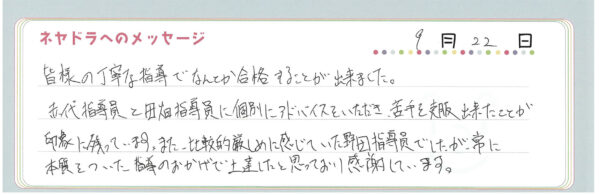 ネヤドラへのメッセージ
9月22日
皆様の丁寧な指導でなんとか合格することが出来ました。
古代指導員と田畑指導員に個別にアドバイスをいただき、苦手を克服出来たことが
印象に残っています。また、比較的厳しめに感じていた野田指導員でしたが、常に
本質をついた指導のおかげで上達したと思っており感謝しています。